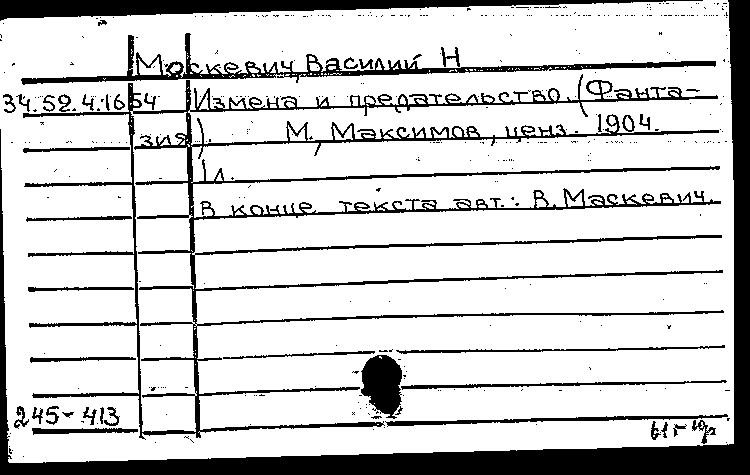 Москевич, Василий Н
34.52.4.1654 Измена и предательство. (Фанта-
зия). М., Максимов, ценз. 1904.
1 л.
В конце текста авт.: В. Маскевич.
245-413
61г